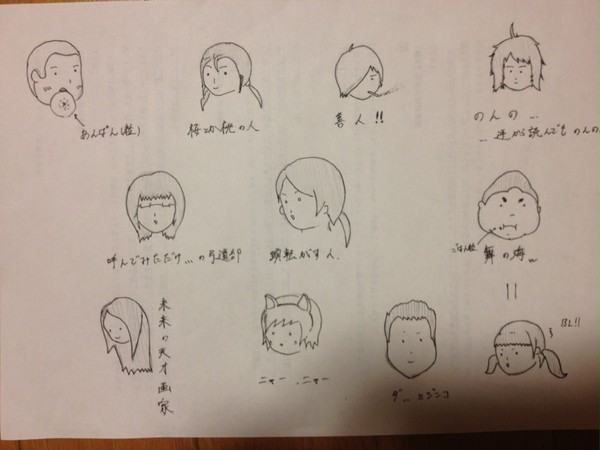 あんぱん(粒)
桜か桃の人
善人!!
のんの...
...逆から読んでものんの
呼んでみただけ...の弓道部
顎転がす人
ごはん粒
舞の海
BL!!
未来の天才画家
ニャー、ニャー
ダ...ヒジンコ